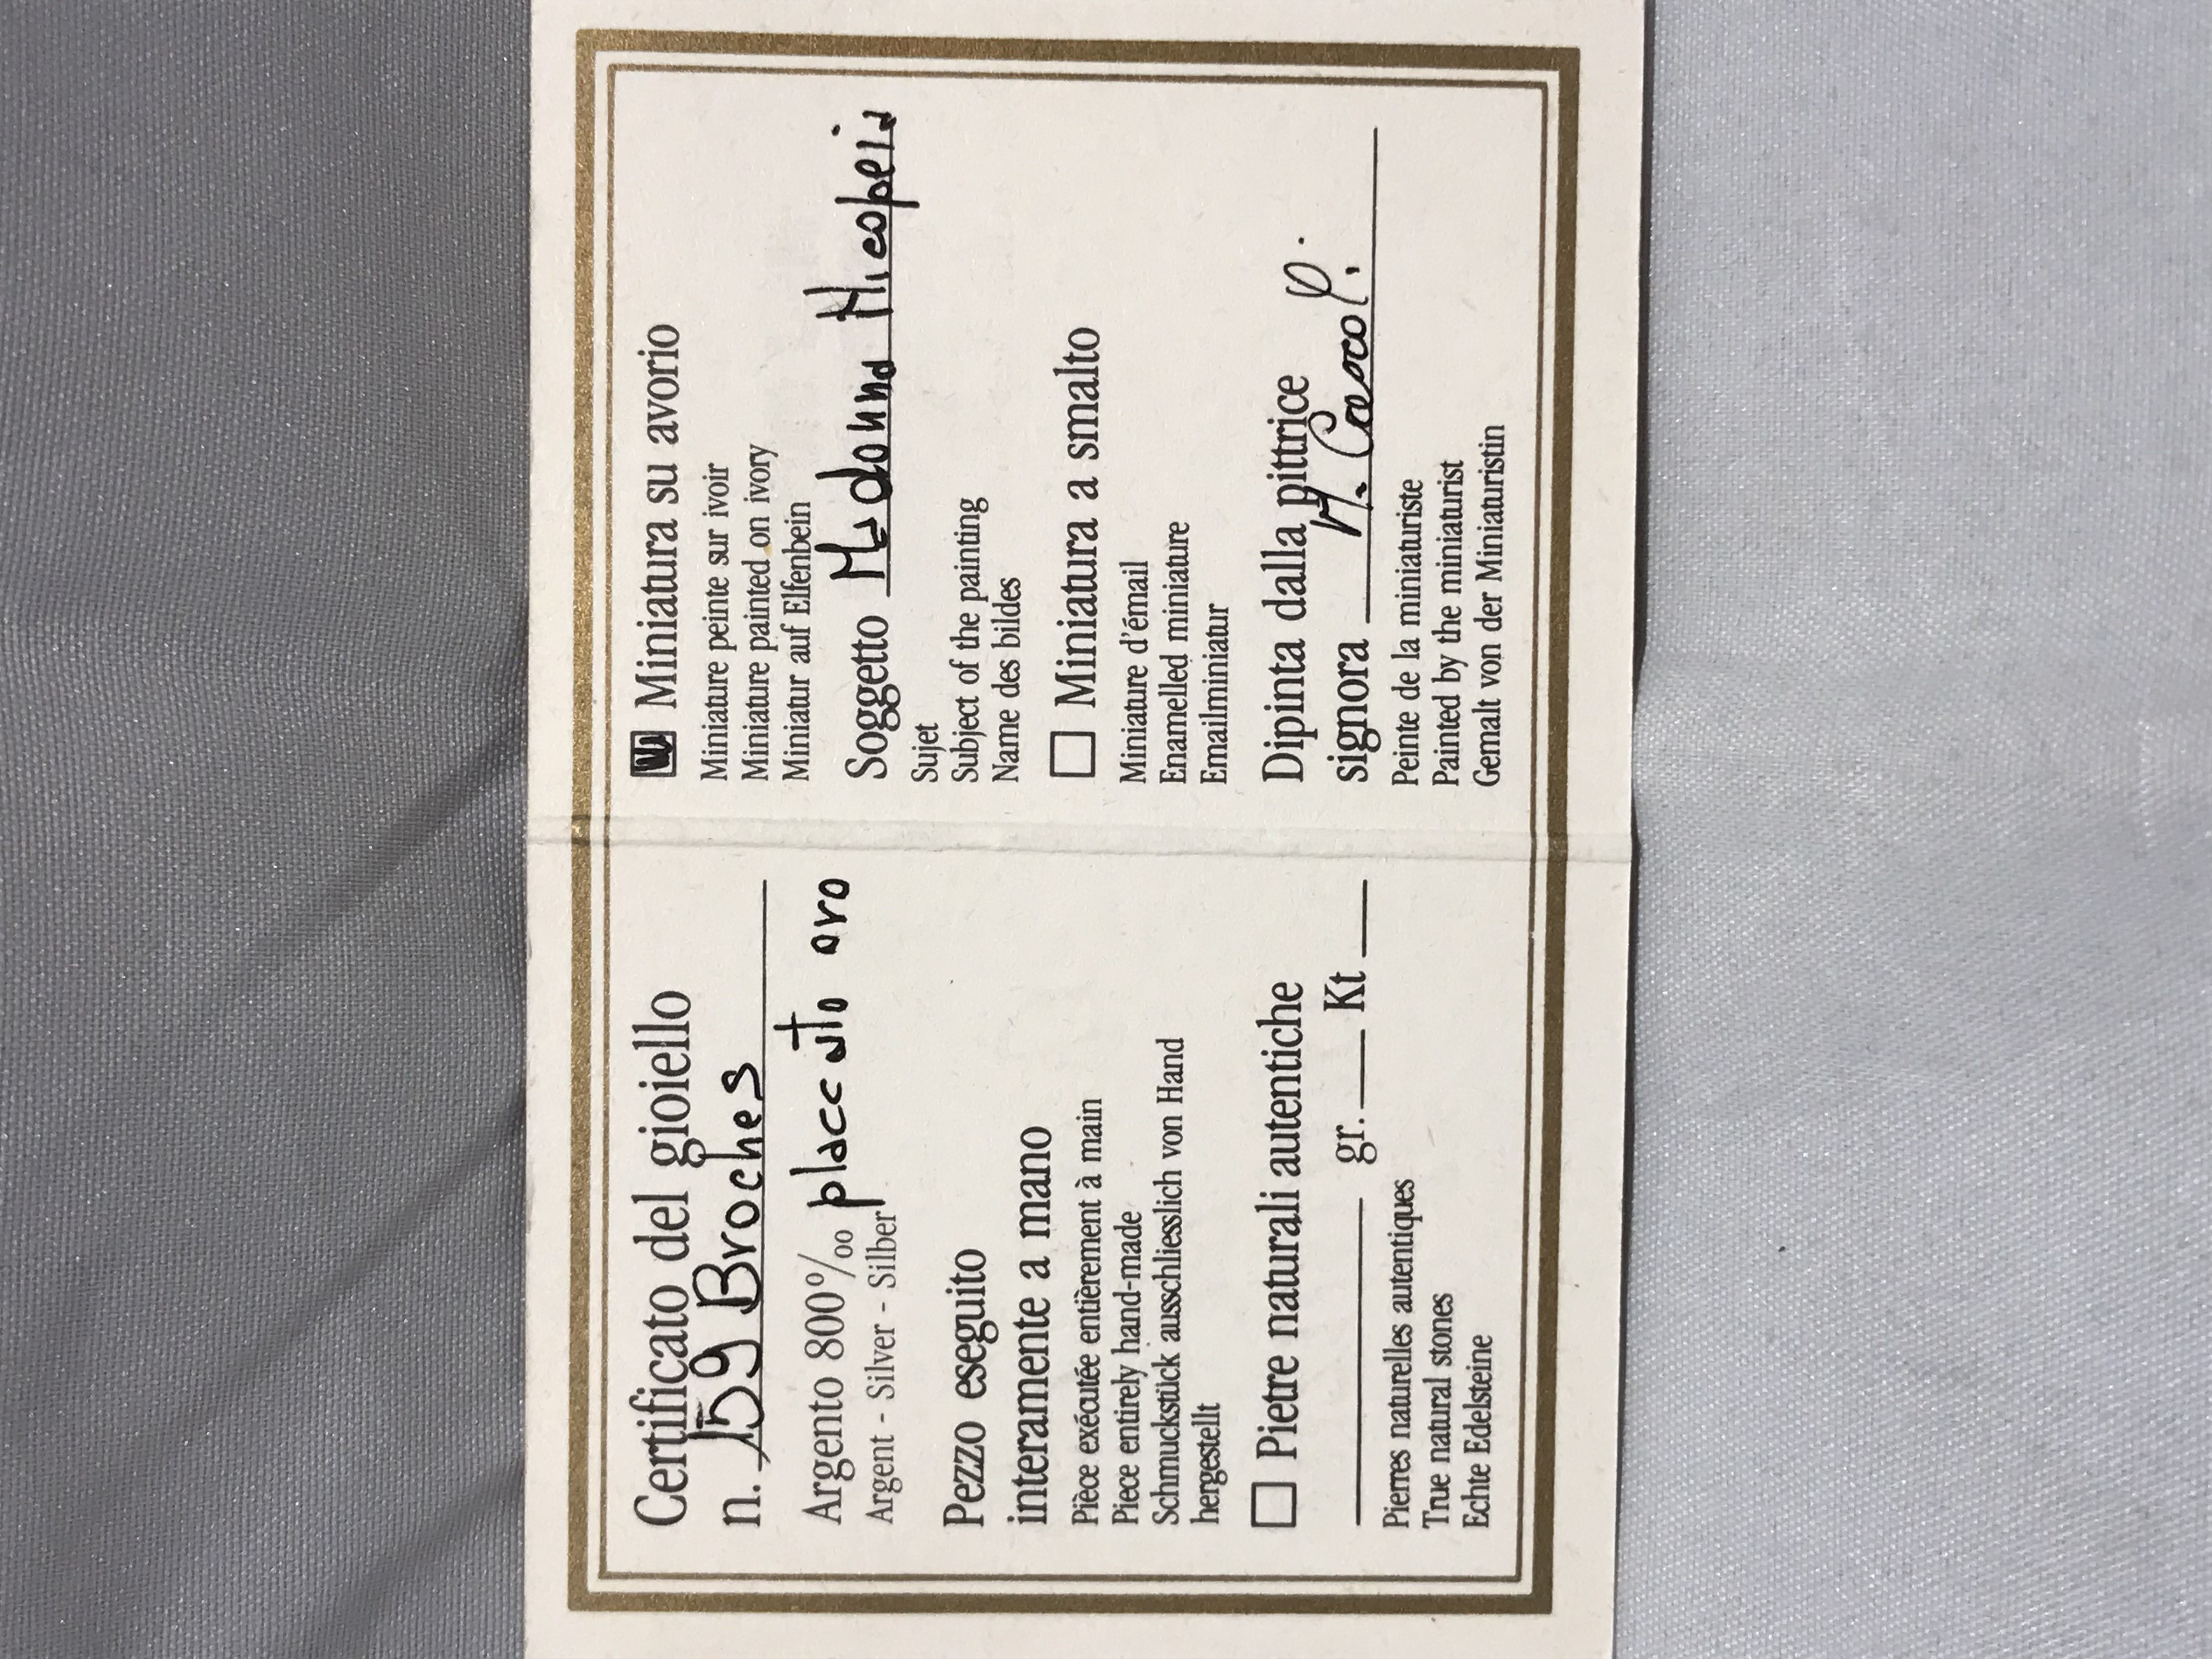 Certificato del gioiello
n. 159 Broches
Argento 800‰ placcato oro
Argent - Silver - Silber
Pezzo eseguito
interamente a mano
Pièce exécutée entièrement à main
Piece entirely hand-made
Schmuckstück ausschliesslich von Hand
hergestellt
Pietre naturali autentiche
gr. Kt
Pierres naturelles autentiques
True natural stones
Echte Edelsteine
Miniatura su avorio
Miniature peinte sur ivoir
Miniature painted on ivory
Miniatur auf Elfenbein
Soggetto Madonna
Sujet
Subject of the painting
Name des bildes
Miniatura a smalto
Miniature d'émail
Enamelled miniature
Emailminiatur
Dipinta dalla pittrice
signora
Peinte de la miniaturiste
Painted by the miniaturist
Gemalt von der Miniaturistin